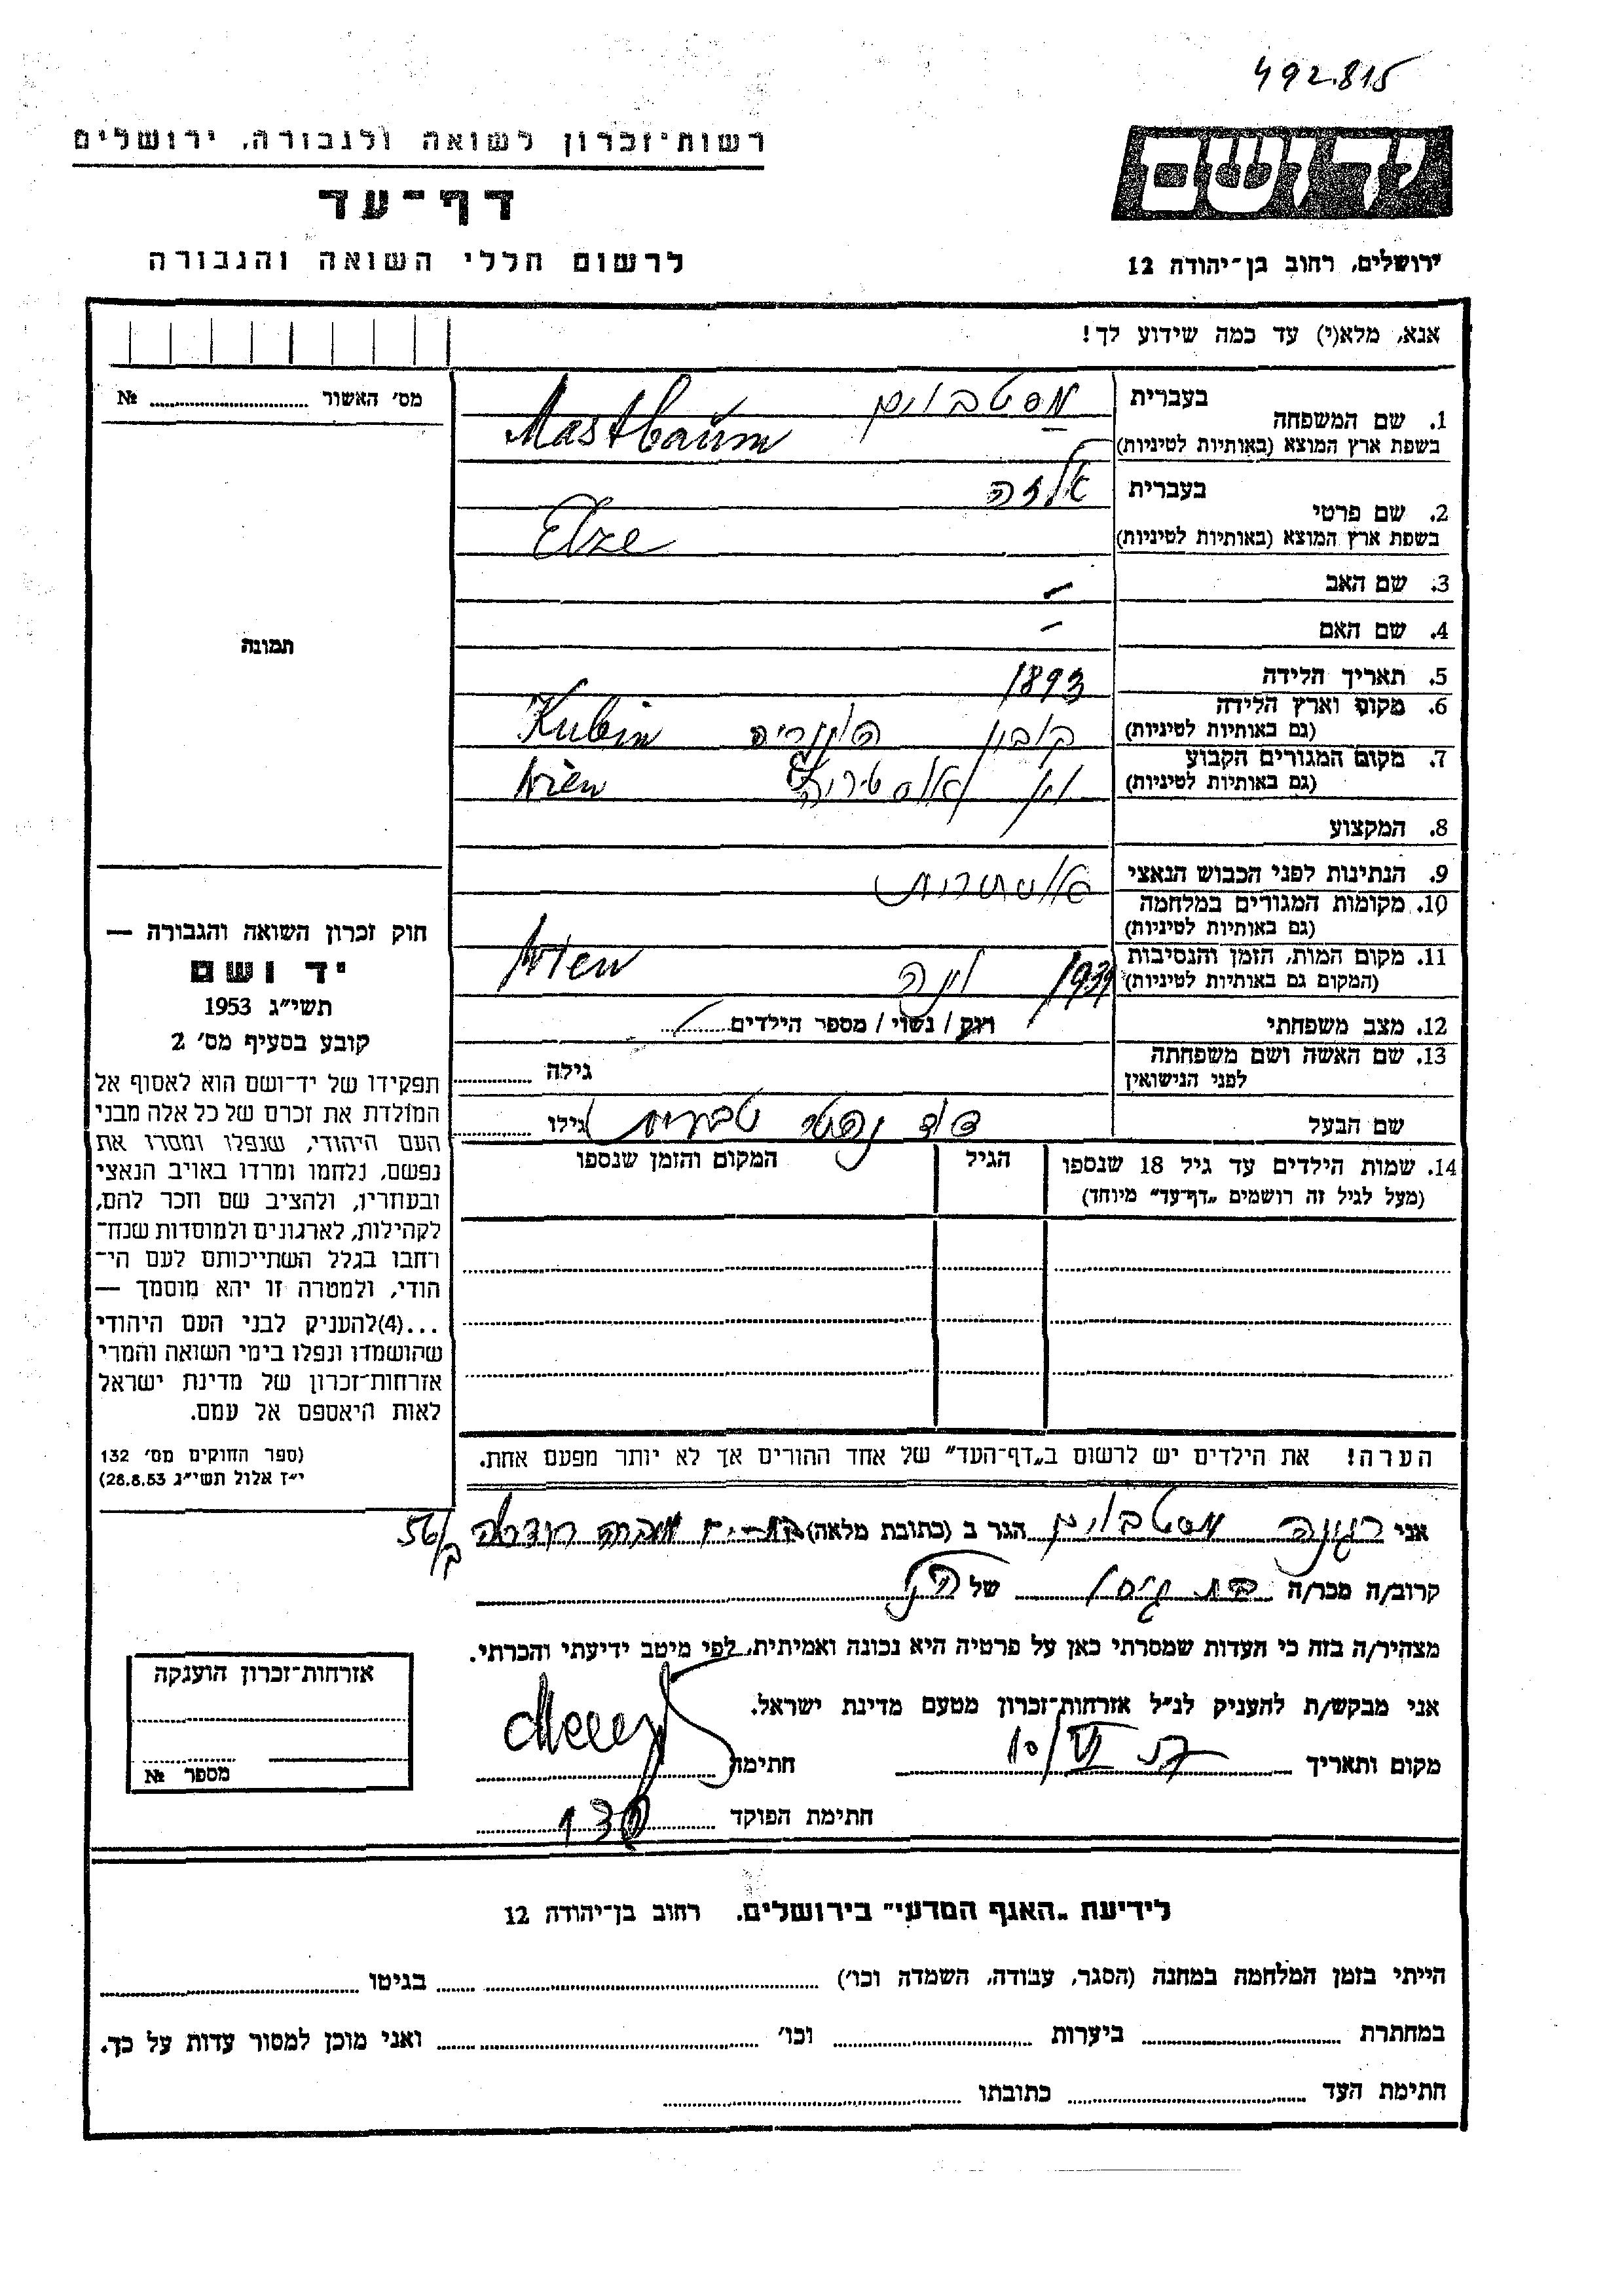 492.815
רשות־זכרון לשואה ולגבורה, ירושלים
דף־עד
לרשום חללי השואה והגבורה
ידושם
ירושלים, רחוב בן־יהודה 12
אנא, מלא(י) עד כמה שידוע לך!
מס׳ האשור № 
תמונה
חוק זכרון השואה והגבורה —
יד ושם
תשי״ג 1953
קובע בסעיף מס׳ 2
תפקידו של יד־ושם הוא לאסוף אל
המולדת את זכרם של כל אלה מבני
העם היהודי, שנפלו ומסרו את
נפשם, נלחמו ומרדו באויב הנאצי
ובעוזריו, ולהציב שם וזכר להם,
לקהילות, לארגונים ולמוסדות שנח־
רחבו בגלל השתייכותם לעם הי־
הודי, ולמטרה זו יהא מוסמך —
...(4)להעניק לבני העם היהודי
שהושמדו ונפלו בימי השואה והמרי
אזרחות־זכרון של מדינת ישראל
לאות היאספם אל עמם.
(ספר החוקים מס׳ 132
י״ז אלול תשי״ג 28.8.53)
1. שם המשפחה בעברית מסטבוים
בשפת ארץ המוצא (באותיות לטיניות) Mastbaŭm
2. שם פרטי בעברית אלזה
בשפת ארץ המוצא (באותיות לטיניות) Elze
3. שם האב -
4. שם האם -
5. תאריך הלידה 1893
6. מקום וארץ הלידה (גם באותיות לטיניות) קובין הונגריה Kubin
7. מקום המגורים הקבוע (גם באותיות לטיניות) וין אוסטריה Wien
8. המקצוע
9. הנתינות לפני הכבוש הנאצי אוסטרית
10. מקומות המגורים במלחמה (גם באותיות לטיניות)
11. מקום המות, הזמן והנסיבות (המקום גם באותיות לטיניות) 1939 וינה Wien
12. מצב משפחתי רווק / נשוי / מספר הילדים
13. שם האשה ושם משפחתה לפני הנישואין גילה
שם הבעל גילו
14. שמות הילדים עד גיל 18 שנספו הגיל המקום והזמן שנספו
(מעל לגיל זה רושמים „דף־עד״ מיוחד)
הערה! את הילדים יש לרשום ב„דף־העד״ של אחד ההורים אך לא יותר מפעם אחת.
אני רגינה מסטבוים הגר ב (כתובת מלאה) 56/ב
קרוב/ה מכר/ה של
מצהיר/ה בזה כי העדות שמסרתי כאן על פרטיה היא נכונה ואמיתית, לפי מיטב ידיעתי והכרתי.
אני מבקש/ת להעניק לנ״ל אזרחות־זכרון מטעם מדינת ישראל.
מקום ותאריך 10/VI חתימה
חתימת הפוקד 130
אזרחות־זכרון הוענקה
מספר №
לידיעת „האגף המדעי״ בירושלים, רחוב בן־יהודה 12
הייתי בזמן המלחמה במחנה (הסגר, עבודה, השמדה וכו׳) בגיטו
במחתרת ביערות וכו׳ ואני מוכן למסור עדות על כך.
חתימת העד כתובתו